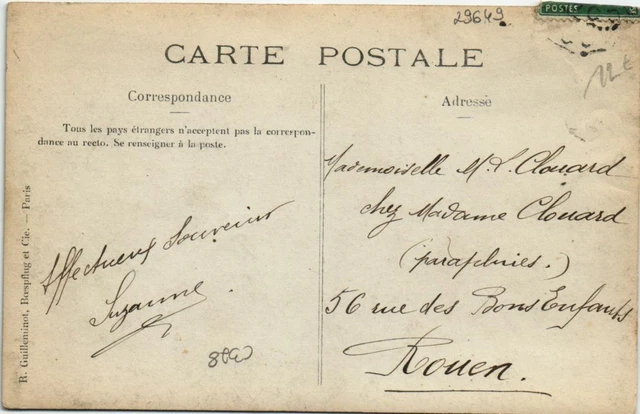 29649
POSTES
12 €
CARTE POSTALE
Correspondance
Adresse
Tous les pays étrangers n'acceptent pas la correspon-
dance au recto. Se renseigner à la poste.
Affectueux Souvenir
Suzanne.
Mademoiselle M. L. Clouard
chez Madame Clouard
(parapluies.)
56 rue des Bons Enfants
Rouen.
R. Guilleminot, Bœspflug et Cie. — Paris